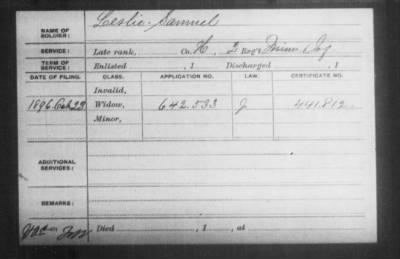 NAME OF SOLDIER: Leslie Samuel
SERVICE: Late rank, Co. H, 2 Reg't Minn Inf
TERM OF SERVICE: Enlisted , 1 Discharged , 1
DATE OF FILING. CLASS. APPLICATION NO. LAW. CERTIFICATE NO.
Invalid,
1896 Widow, 642.533 441.812
Minor,
ADDITIONAL SERVICES:
REMARKS:
Died , 1 , at